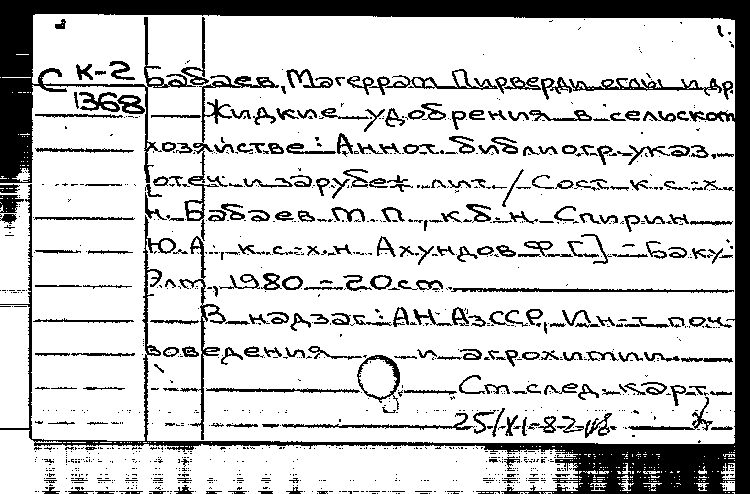 1.
С К-2 Бабаев, Магеррам Пирверди оглы и др
1368 Жидкие удобрения в сельском
хозяйстве: Аннот. библиогр. указ.
[отеч. и зарубеж. лит. / Сост. к. с.-х.
н. Бабаев М.П., к.б.н. Спирин
Ю.А., к.с.-х.н. Ахундов Ф.Г.] - Баку:
Элм, 1980 - 20 см.
В надзаг.: АН АзССР, Ин-т поч-
воведения и агрохимии.
См. след. карт.
25/XI-82